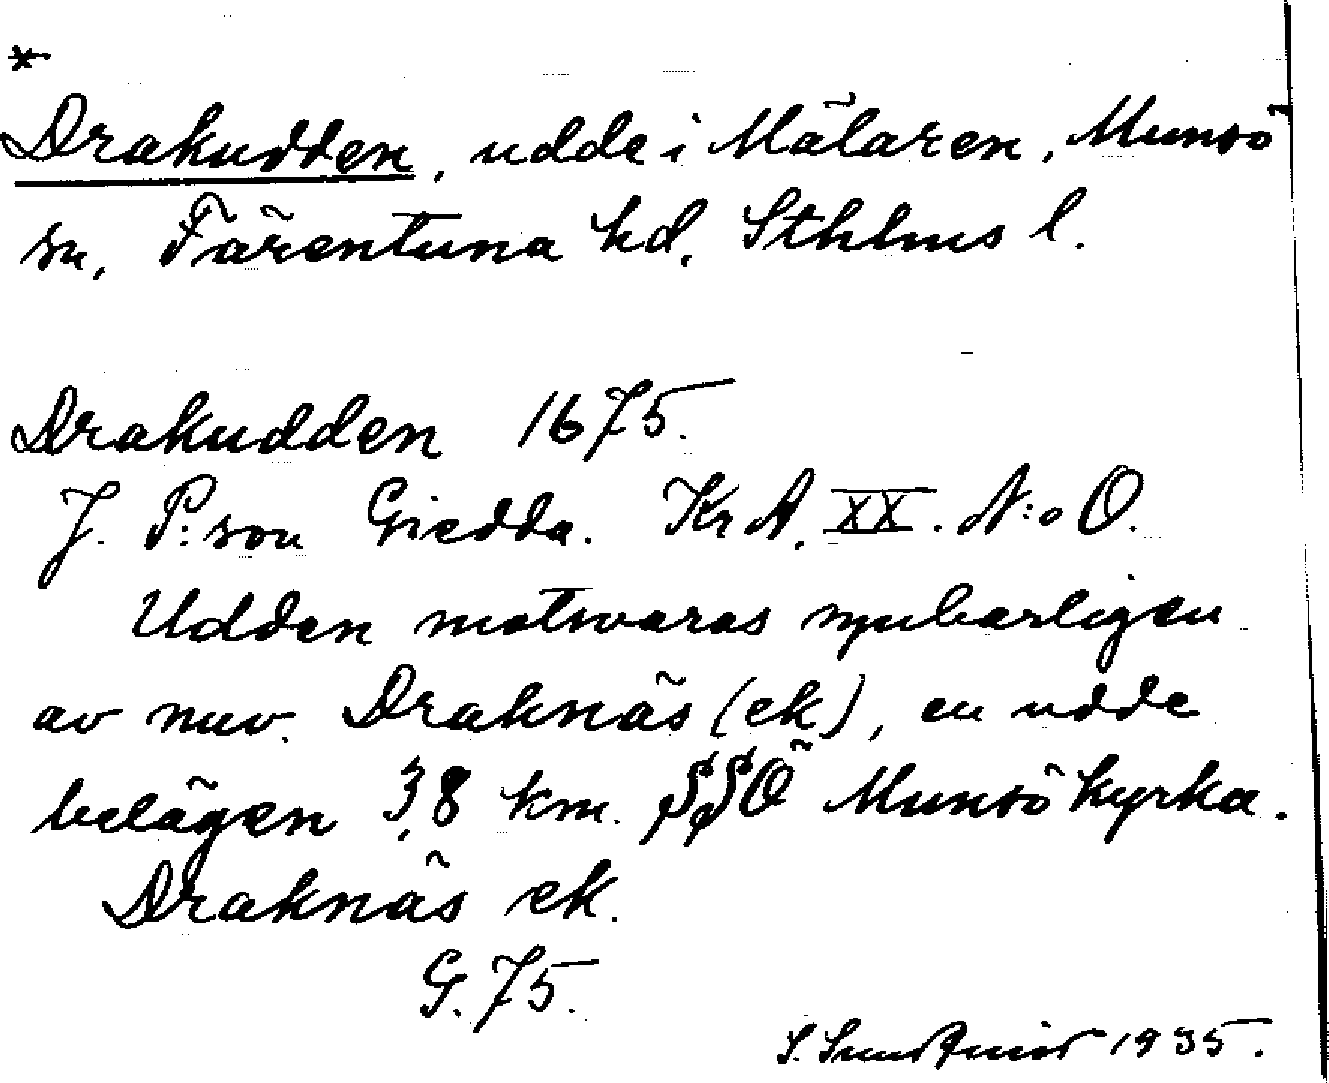 *
Drakudden, udde i Mälaren, Munsö
sn, Färentuna hd, Sthlms l.
Drakudden 1675.
J. P:son Giedda. Kr A. XX. N:o O.
Udden motsvaras uppenbarligen
av nuv. Draknäs (ek), en udde
belägen 3,8 km. SSÖ Munsö kyrka.
Draknäs ek.
G. 75.
S. 1935.